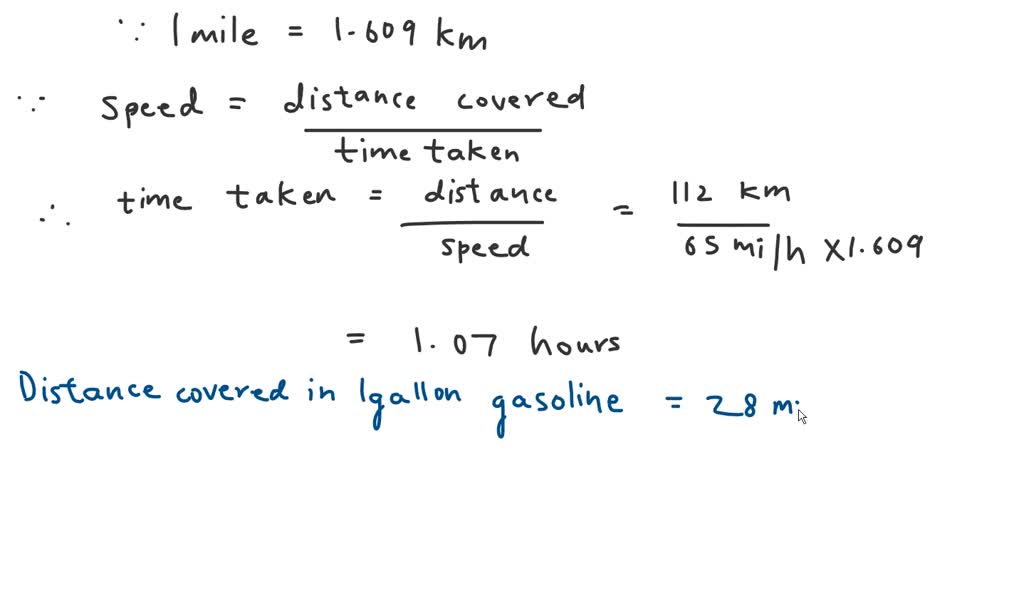 ∵ 1 mile = 1.609 km
∵ speed = distance covered
time taken
∴ time taken = distance = 112 km
speed 65 mi/h X1.609
= 1.07 hours
Distance covered in 1gallon gasoline = 28 mi